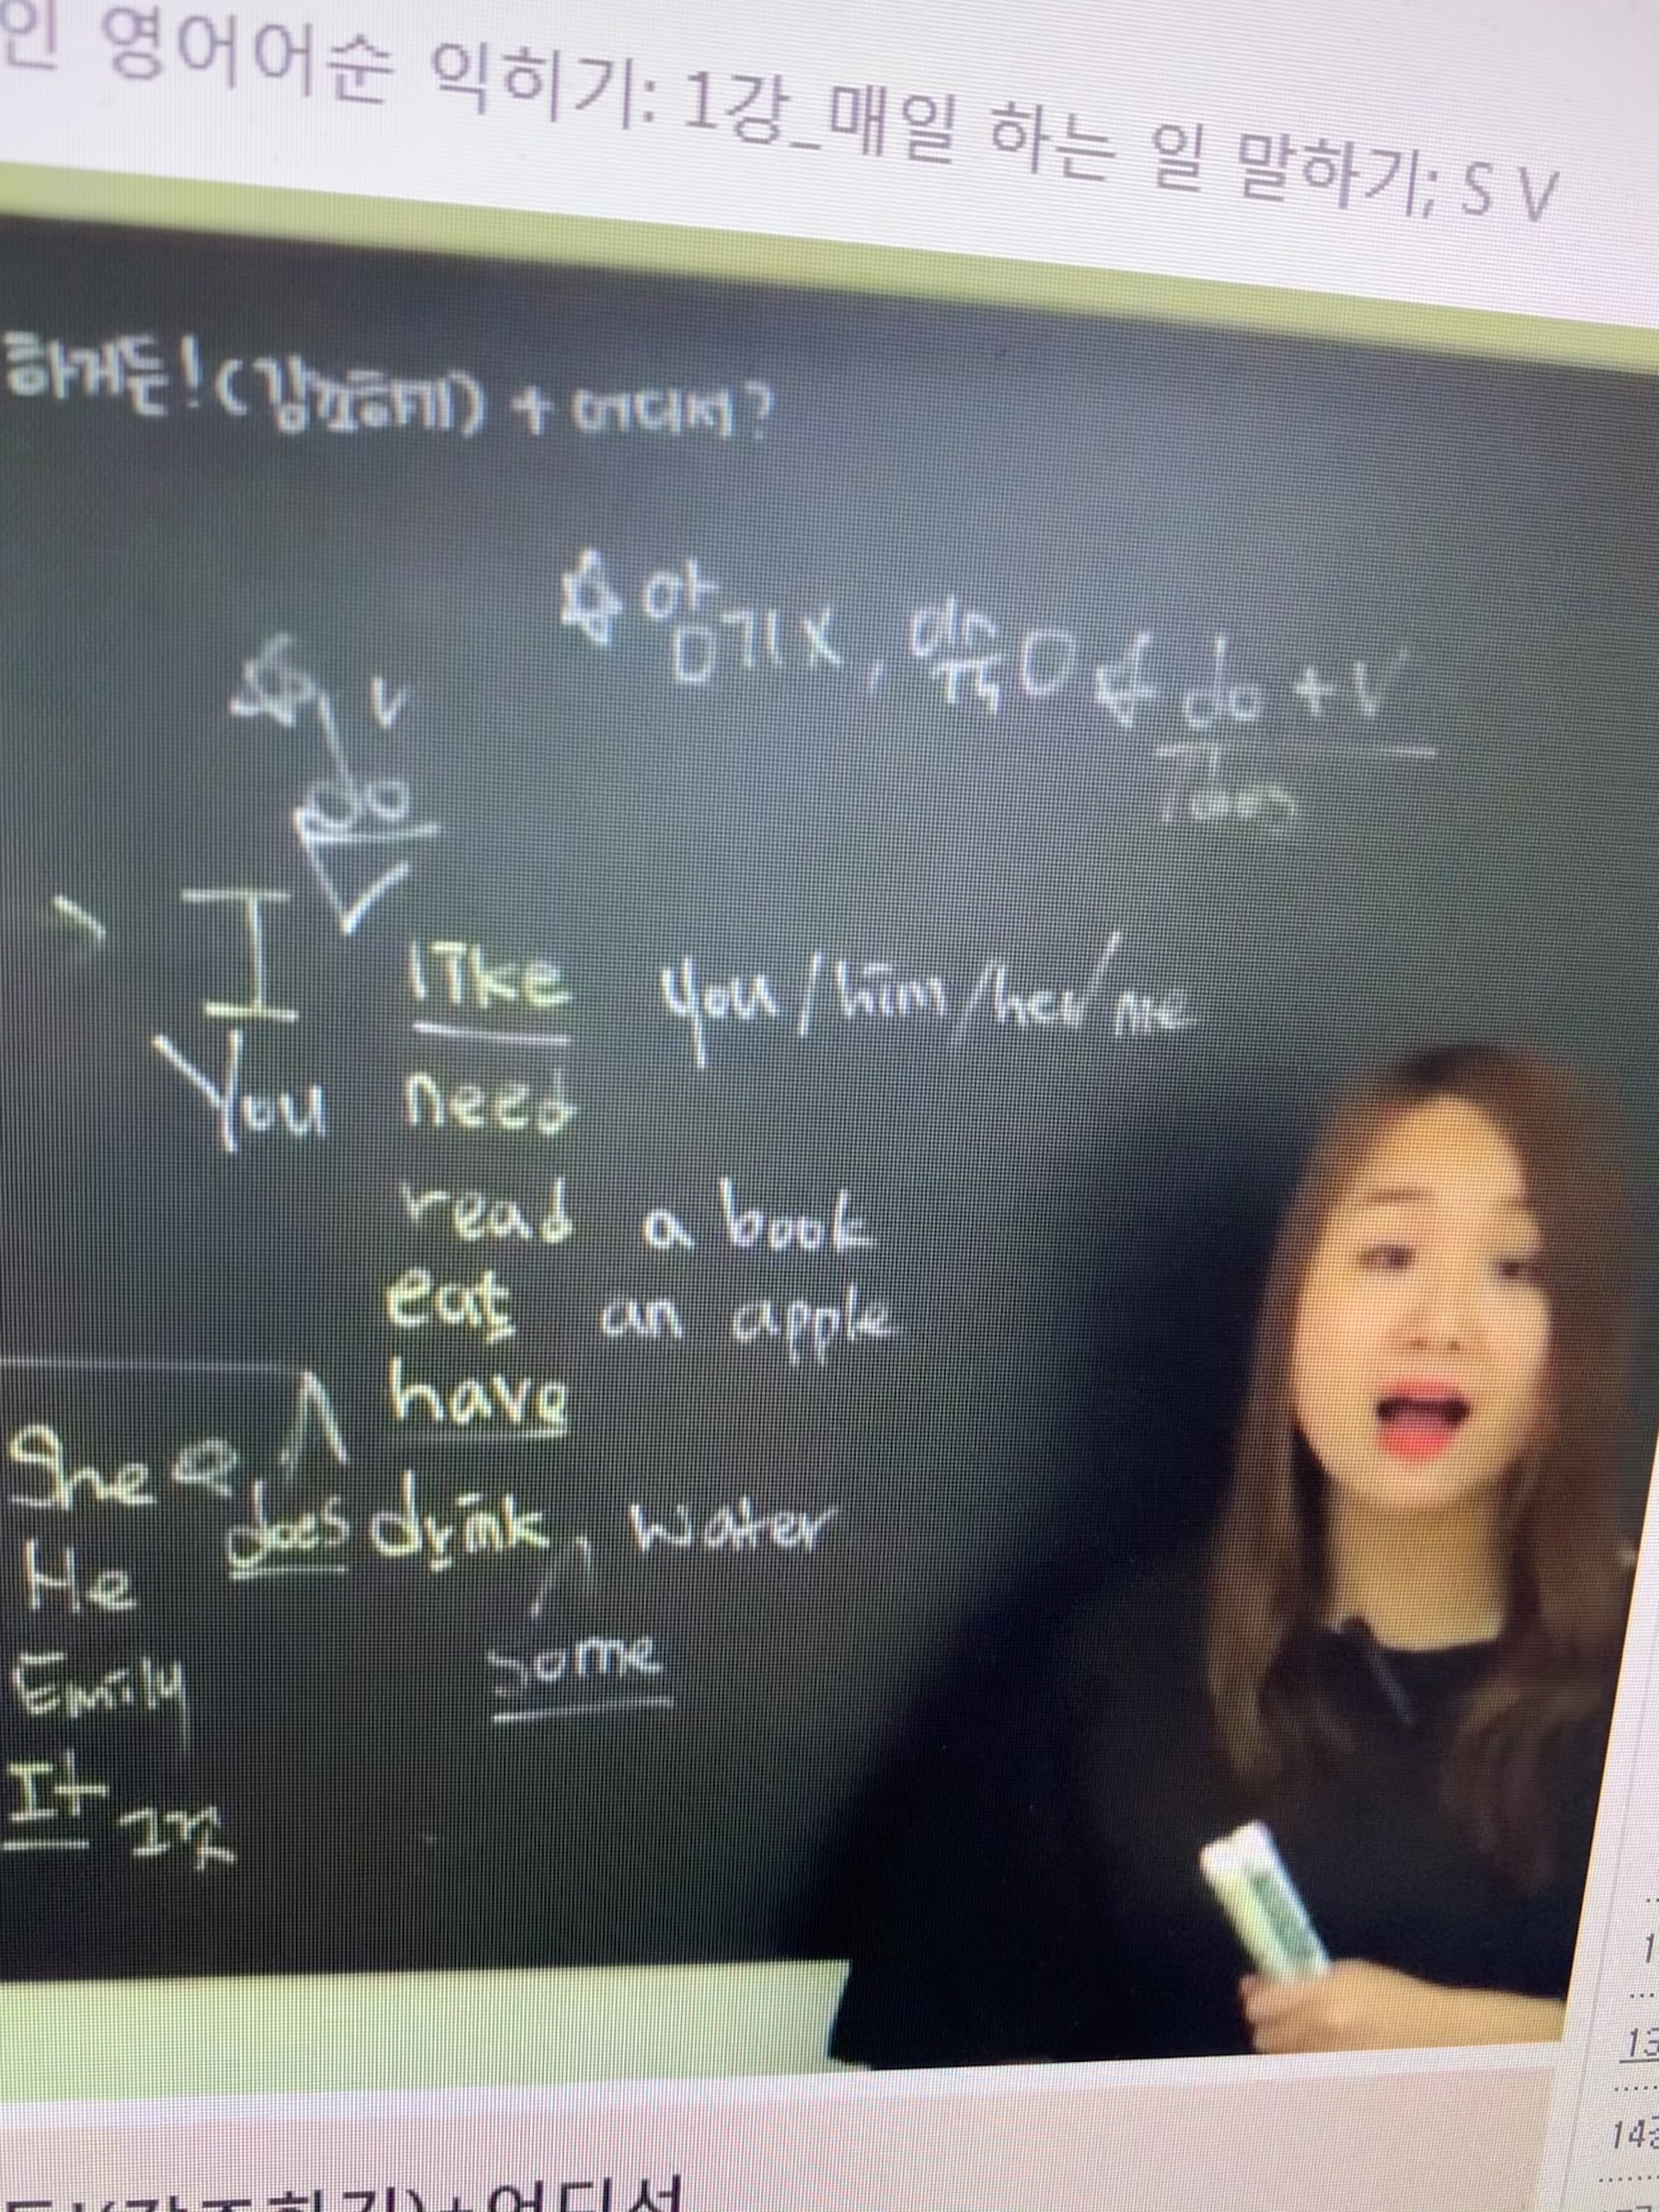 인 영어어순 익히기: 1강_매일 하는 일 말하기; S V
하거든! (강조하기) + 어디서?
☆ 암기X, 이해O
do + V
does
☆ V
do
I like you/him/her/me
You need
read a book
eat an apple
have
She
does drink, water
He
some
Emily
It 그것
1
13
14강
(강조하기)+어디서